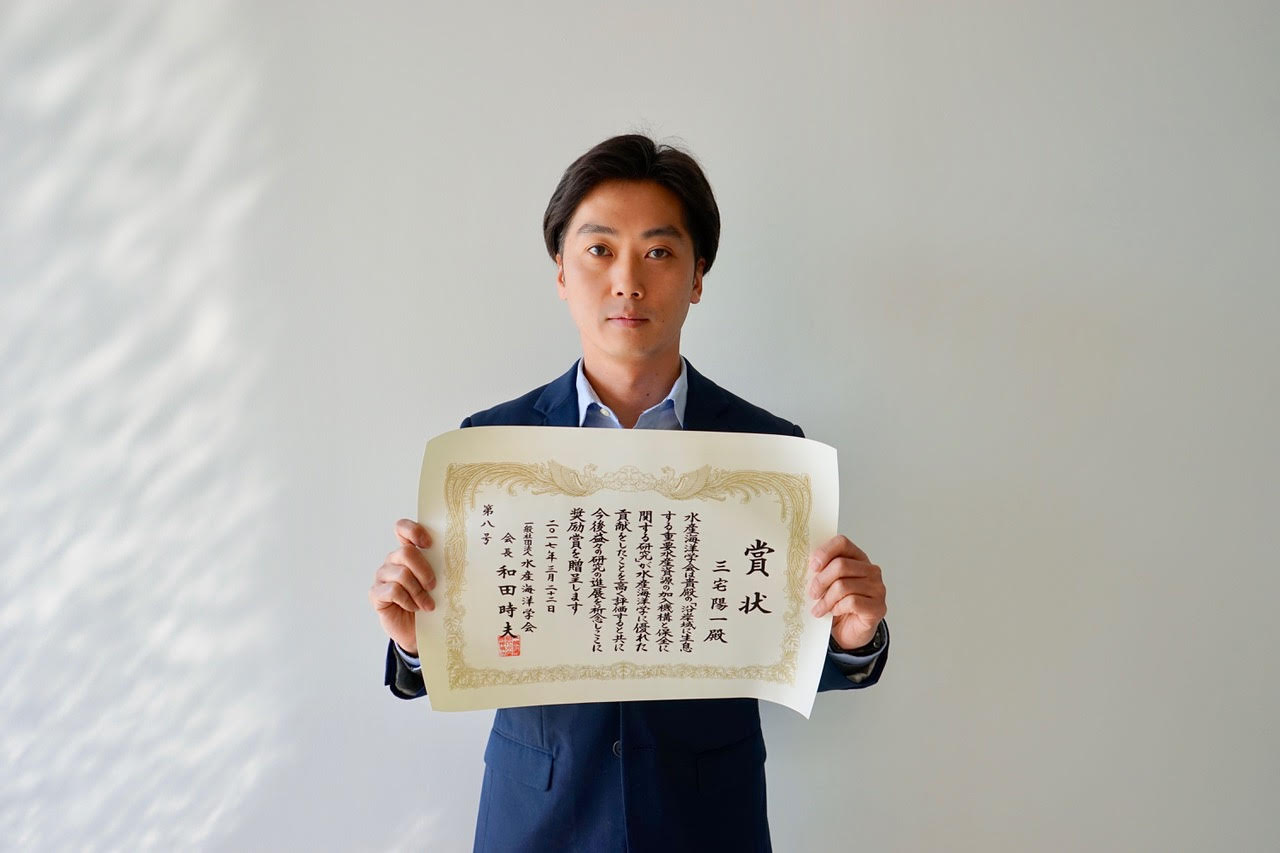 賞状
三宅陽一殿
水産海洋学会は貴殿の「沿岸域に生息
する重要水産資源の加入機構と保全に
関する研究」が水産海洋学に優れた
貢献をしたことを高く評価すると共に
今後益々の研究の進展を祈念しここに
奨励賞を贈呈します
二〇一七年三月二十二日
一般社団法人 水産海洋学会
会長 和田時夫
第八号